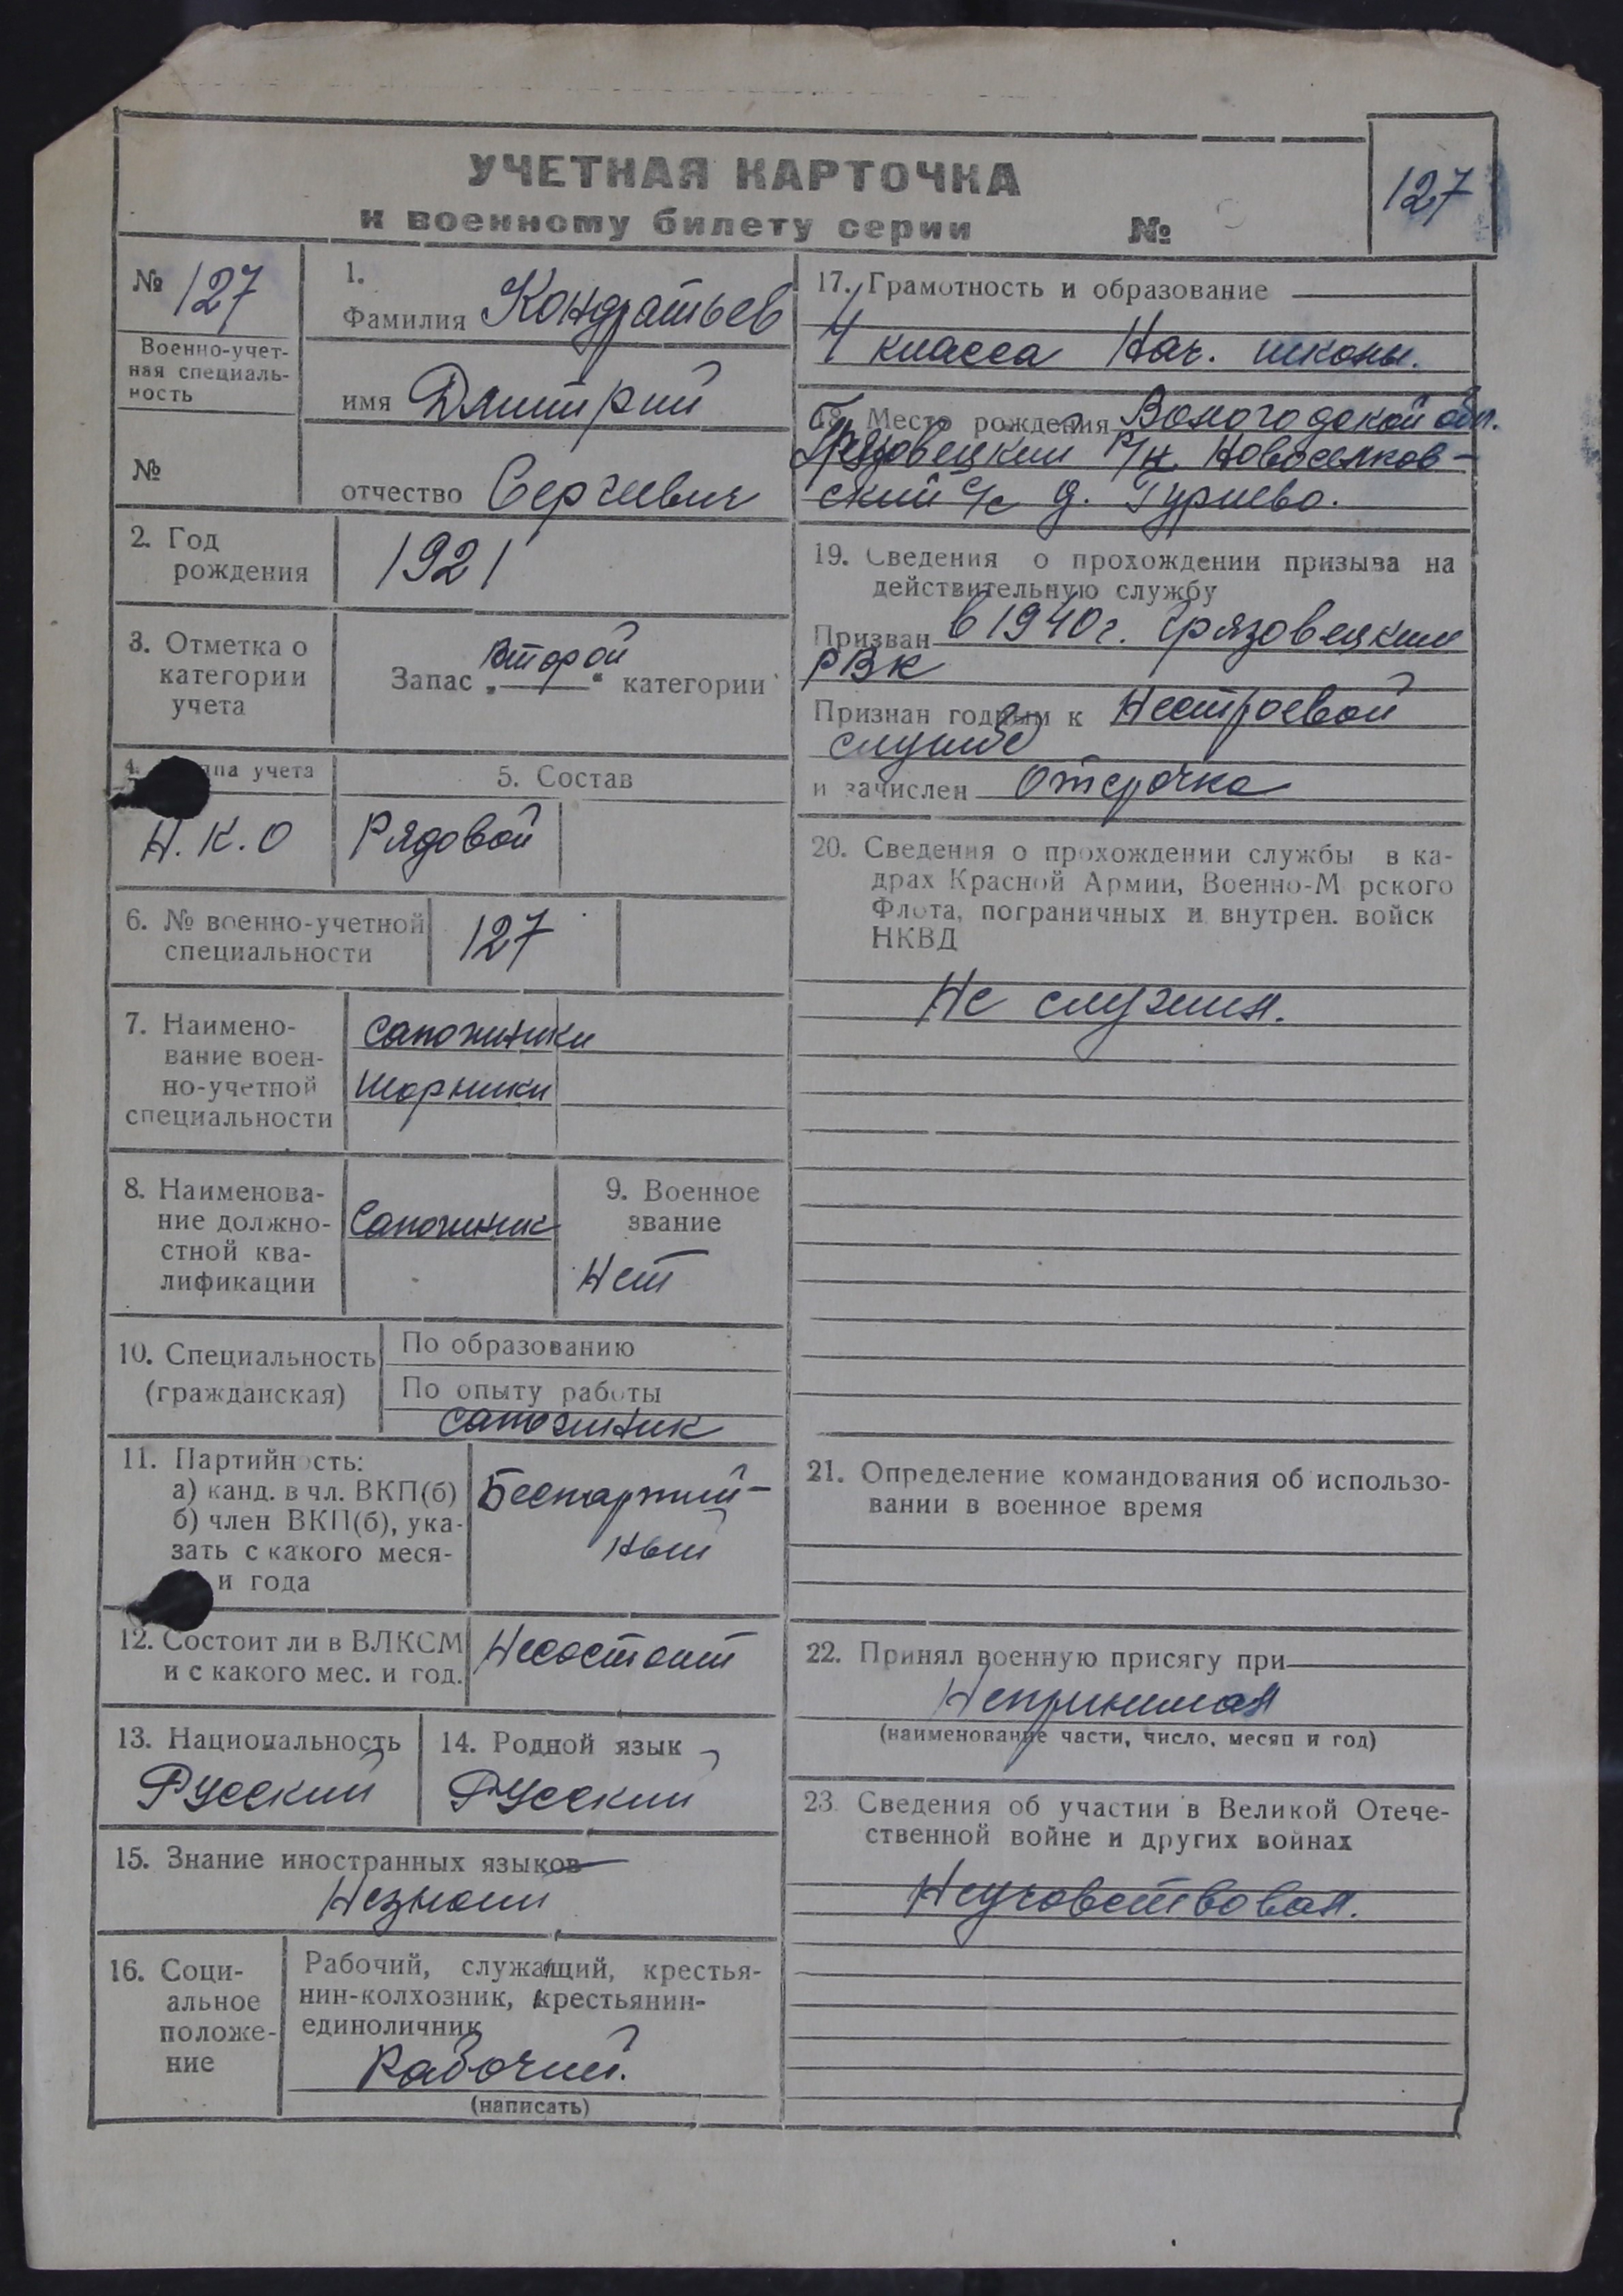 УЧЕТНАЯ КАРТОЧКА
к военному билету серии №
127
№ 127
Военно-учет-
ная специаль-
ность
№
1.
Фамилия Кондратьев
имя Дмитрий
отчество Сергеевич
2. Год
рождения
1921
3. Отметка о
категории
учета
Запас „второй“ категории
4. ппа учета
Н.К.О
5. Состав
Рядовой
6. № военно-учетной
специальности
127
7. Наимено-
вание воен-
но-учетной
специальности
Сапожники
Шорники
8. Наименова-
ние должно-
стной ква-
лификации
Сапожник
9. Военное
звание
Нет
10. Специальность
(гражданская)
По образованию
По опыту работы
сапожник
11. Партийность:
а) канд. в чл. ВКП(б)
б) член ВКП(б), ука-
зать с какого меся-
и года
Беспартий-
ный
12. Состоит ли в ВЛКСМ
и с какого мес. и год.
Несостоит
13. Национальность
Русский
14. Родной язык
Русский
15. Знание иностранных языков
Незнает
16. Соци-
альное
положе-
ние
Рабочий, служащий, крестья-
нин-колхозник, крестьянин-
единоличник
Рабочий.
(написать)
17. Грамотность и образование
4 класса Нач. школы.
18. Место рождения Вологодской обл.
Грязовецкий р/н. Новоселков-
ский с/с д. Гуриево.
19. Сведения о прохождении призыва на
действительную службу
Призван в 1940г. Грязовецким
РВК
Признан годным к Нестроевой
службе
и зачислен Отсрочка
20. Сведения о прохождении службы в ка-
драх Красной Армии, Военно-М рского
Флота, пограничных и внутрен. войск
НКВД
Не служил.
21. Определение командования об использо-
вании в военное время
22. Принял военную присягу при
Непринимал
(наименование части, число, месяц и год)
23. Сведения об участии в Великой Отече-
ственной войне и других войнах
Неучовствовал.